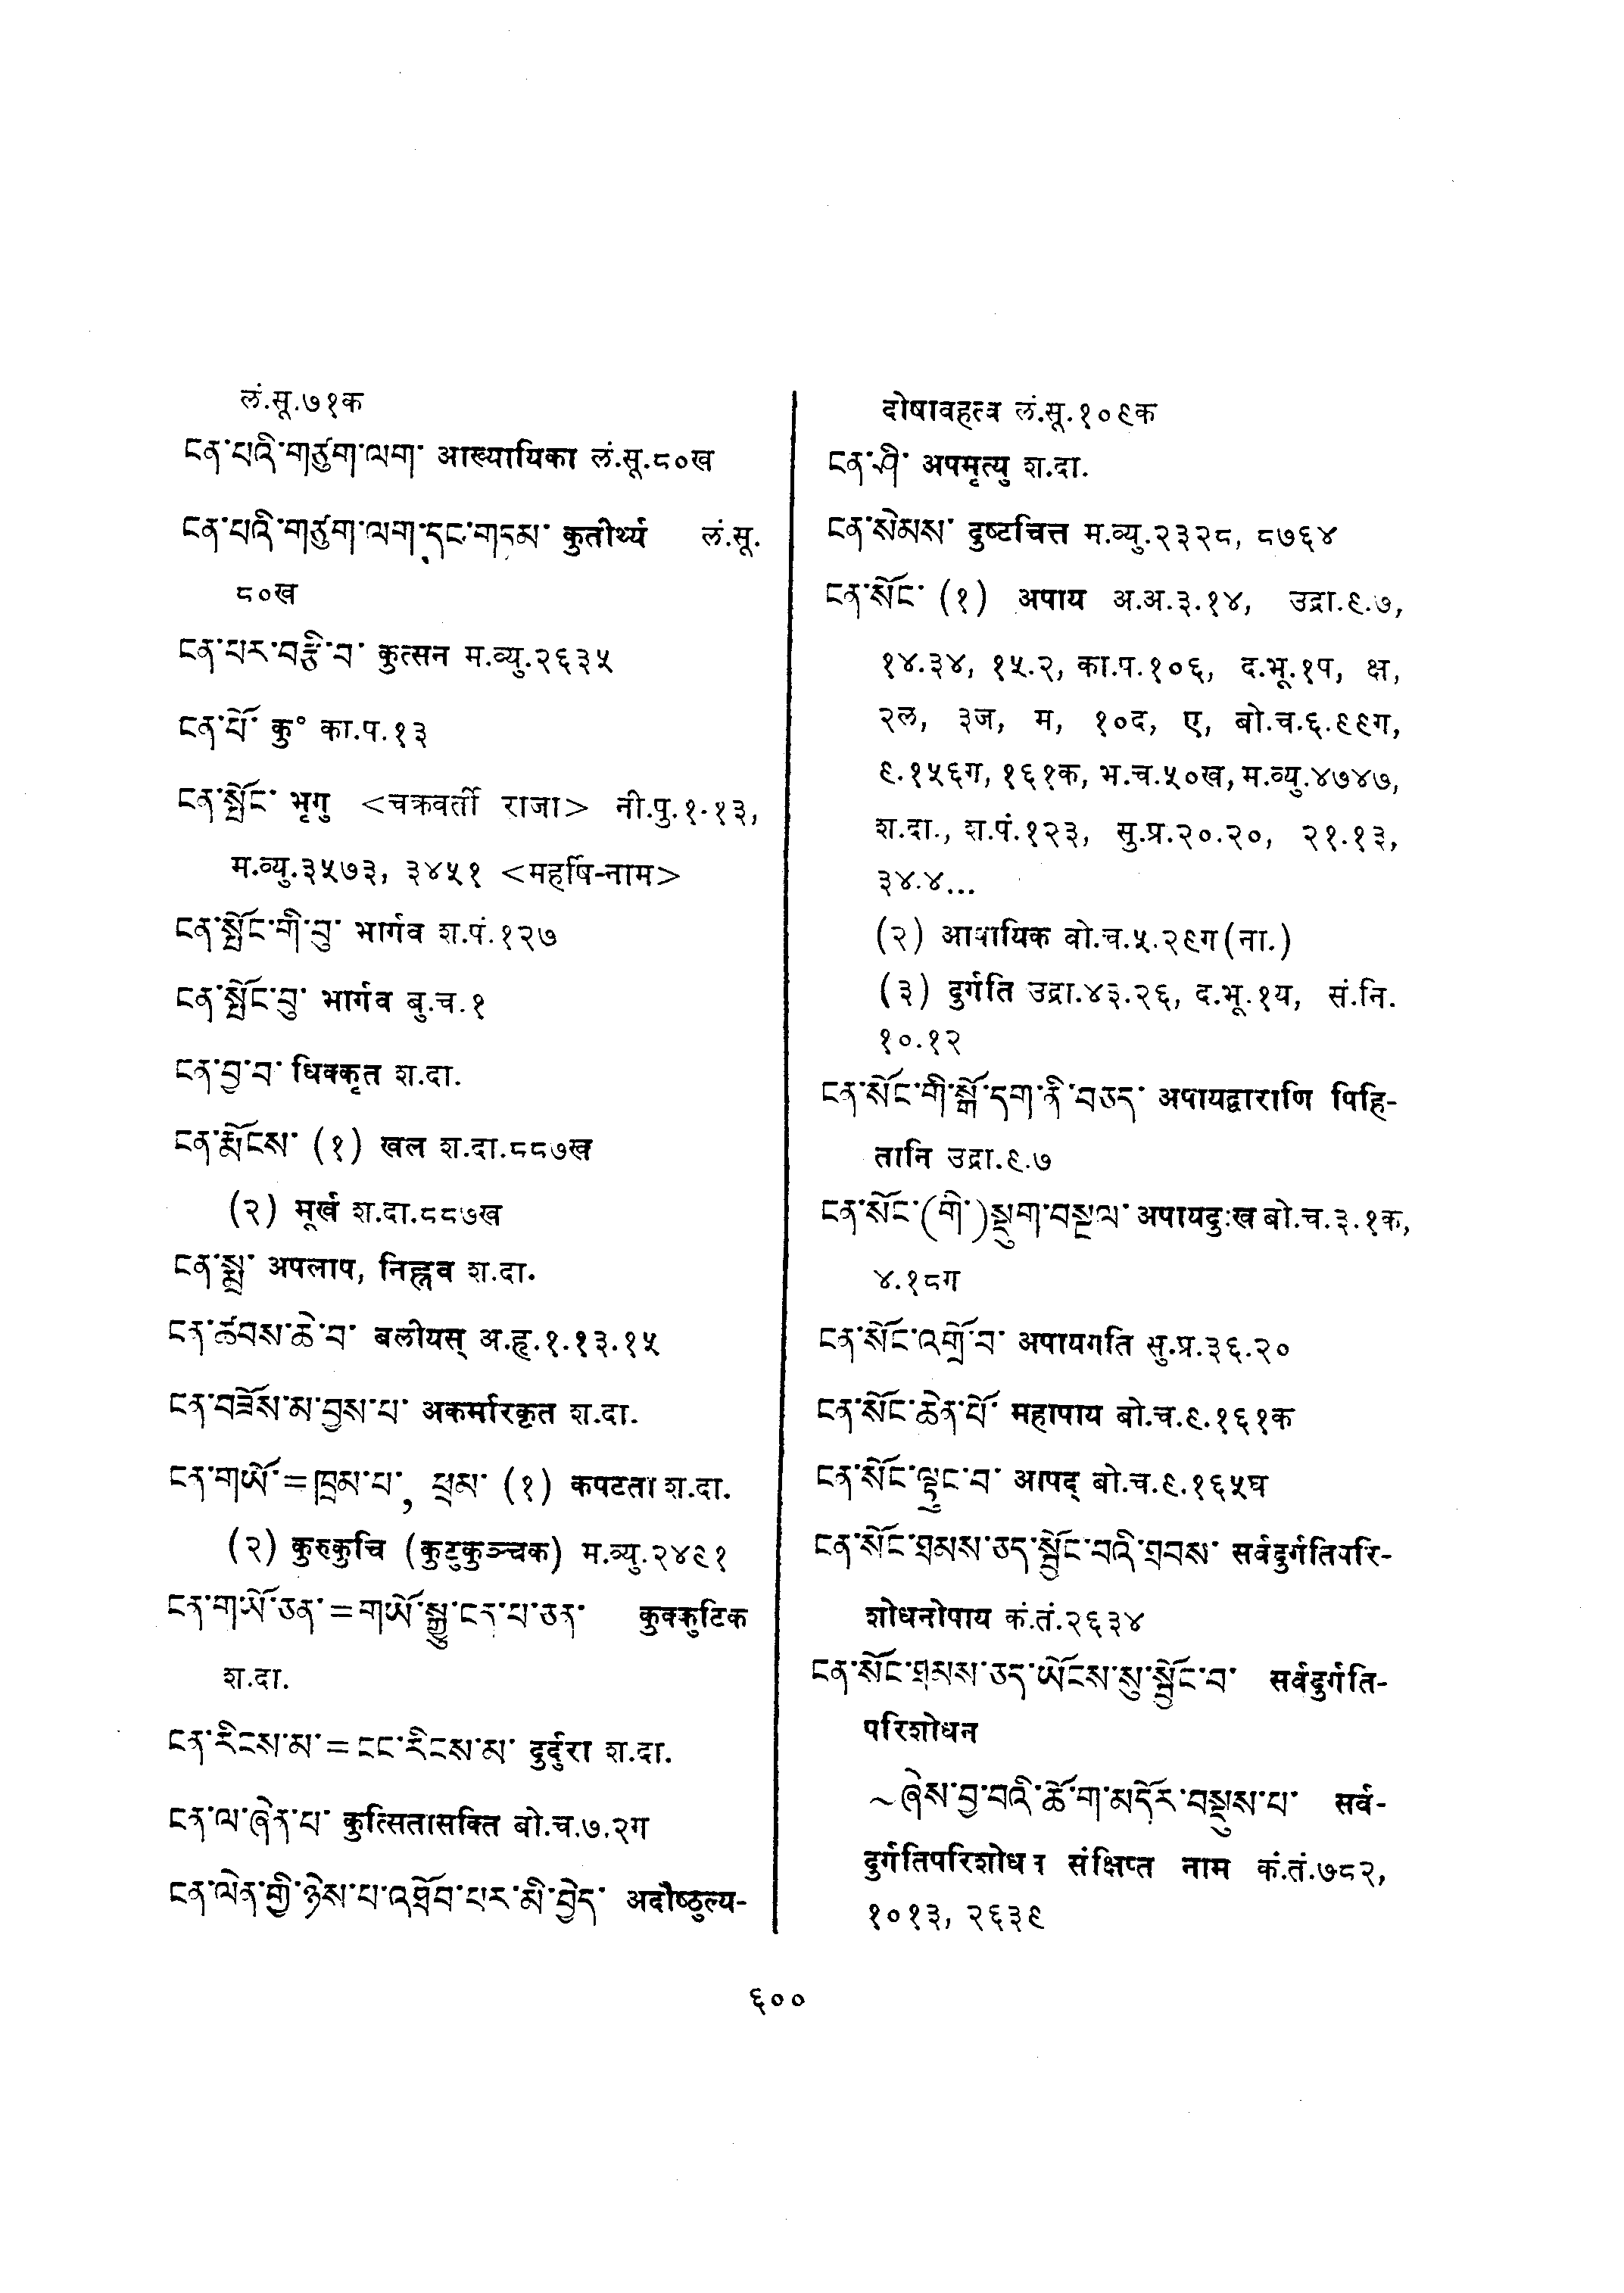 लं.सू.७१क
ངན་པའི་གཙུག་ལག་ आख्यायिका लं.सू.८०ख
ངན་པའི་གཙུག་ལག་དང་གདམ་ कुतीर्थ्य लं.सू.
८०ख
ངན་པར་བརྩི་བ་ कुत्सन म.व्यु.२६३५
ངན་པོ་ कु° का.प.१३
ངན་སྤོང་ भृगु <चक्रवर्ती राजा> नी.पु.१.१३,
म.व्यु.३५७३, ३४५१ <महर्षि-नाम>
ངན་སྤོང་གི་བུ་ भार्गव श.पं.१२७
ངན་སྤོང་བུ་ भार्गव बु.च.१
ངན་བྱ་བ་ धिक्कृत श.दा.
ངན་རྨོངས་ (१) खल श.दा.८८७ख
(२) मूर्ख श.दा.८८७ख
ངན་སྨྲ་ अपलाप, निह्नव श.दा.
ངན་ཚབས་ཆེ་བ་ बलीयस् अ.हृ.१.१३.१५
ངན་བཟོས་མ་བྱས་པ་ अकर्मारकृत श.दा.
ངན་གཡོ་=ཁྲམ་པ་, ཕྲམ་ (१) कपटता श.दा.
(२) कुरुकुचि (कुटुकुञ्चक) म.व्यु.२४९१
ངན་གཡོ་ཅན་=གཡོ་སྒྱུ་ངན་པ་ཅན་ कुक्कुटिक
श.दा.
ངན་རིངས་མ་=ངང་རིངས་མ་ दुर्दुरा श.दा.
ངན་ལ་ཞེན་པ་ कुत्सितासक्ति बो.च.७.२ग
ངན་ལེན་གྱི་ཉེས་པ་འཐོབ་པར་མི་བྱེད་ अदौष्ठुल्य-
दोषावहत्व लं.सू.१०९क
ངན་ཤི་ अपमृत्यु श.दा.
ངན་སེམས་ दुष्टचित्त म.व्यु.२३२८, ८७६४
ངན་སོང་ (१) अपाय अ.अ.३.१४, उद्रा.९.७,
१४.३४, १५.२, का.प.१०६, द.भू.१प, क्ष,
२ल, ३ज, म, १०द, ए, बो.च.६.९९ग,
९.१५६ग, १६१क, भ.च.५०ख, म.व्यु.४७४७,
श.दा., श.पं.१२३, सु.प्र.२०.२०, २१.१३,
३४.४...
(२) आपायिक बो.च.५.२९ग(ना.)
(३) दुर्गति उद्रा.४३.२६, द.भू.१य, सं.नि.
१०.१२
ངན་སོང་གི་སྒོ་དག་ནི་བཅད་ अपायद्वाराणि पिहि-
तानि उद्रा.९.७
ངན་སོང་(གི་)སྡུག་བསྔལ་ अपायदुःख बो.च.३.१क,
४.१८ग
ངན་སོང་འགྲོ་བ་ अपायगति सु.प्र.३६.२०
ངན་སོང་ཆེན་པོ་ महापाय बो.च.९.१६१क
ངན་སོང་ལྟུང་བ་ आपद् बो.च.९.१६५घ
ངན་སོང་ཐམས་ཅད་སྦྱོང་བའི་ཐབས་ सर्वदुर्गतिपरि-
शोधनोपाय कं.तं.२६३४
ངན་སོང་ཐམས་ཅད་ཡོངས་སུ་སྦྱོང་བ་ सर्वदुर्गति-
परिशोधन
~ཞེས་བྱ་བའི་ཆོ་ག་མདོར་བསྡུས་པ་ सर्व-
दुर्गतिपरिशोधन संक्षिप्त नाम कं.तं.७८२,
१०१३, २६३९
६००